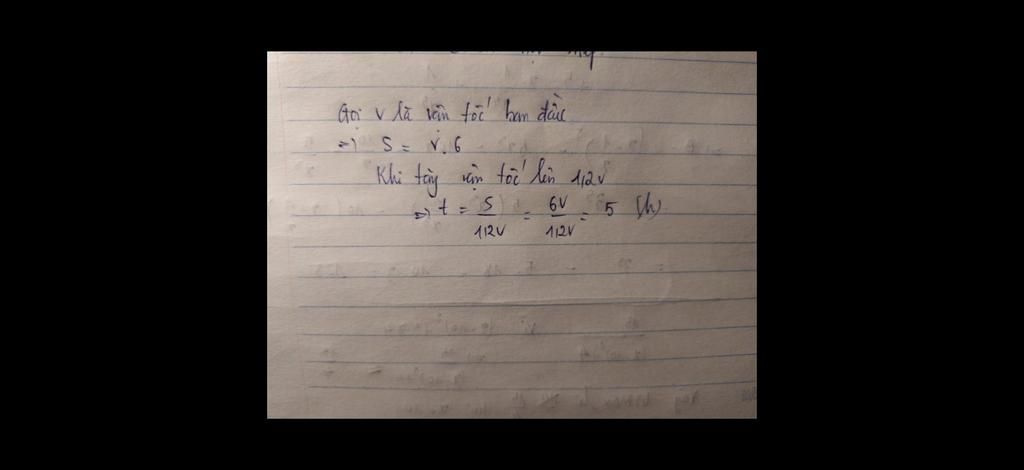 Gọi v là vận tốc ban đầu
=> S = v.6
Khi tăng vận tốc lên 1,2v
=> t = S/1,2v = 6v/1,2v = 5 (h)